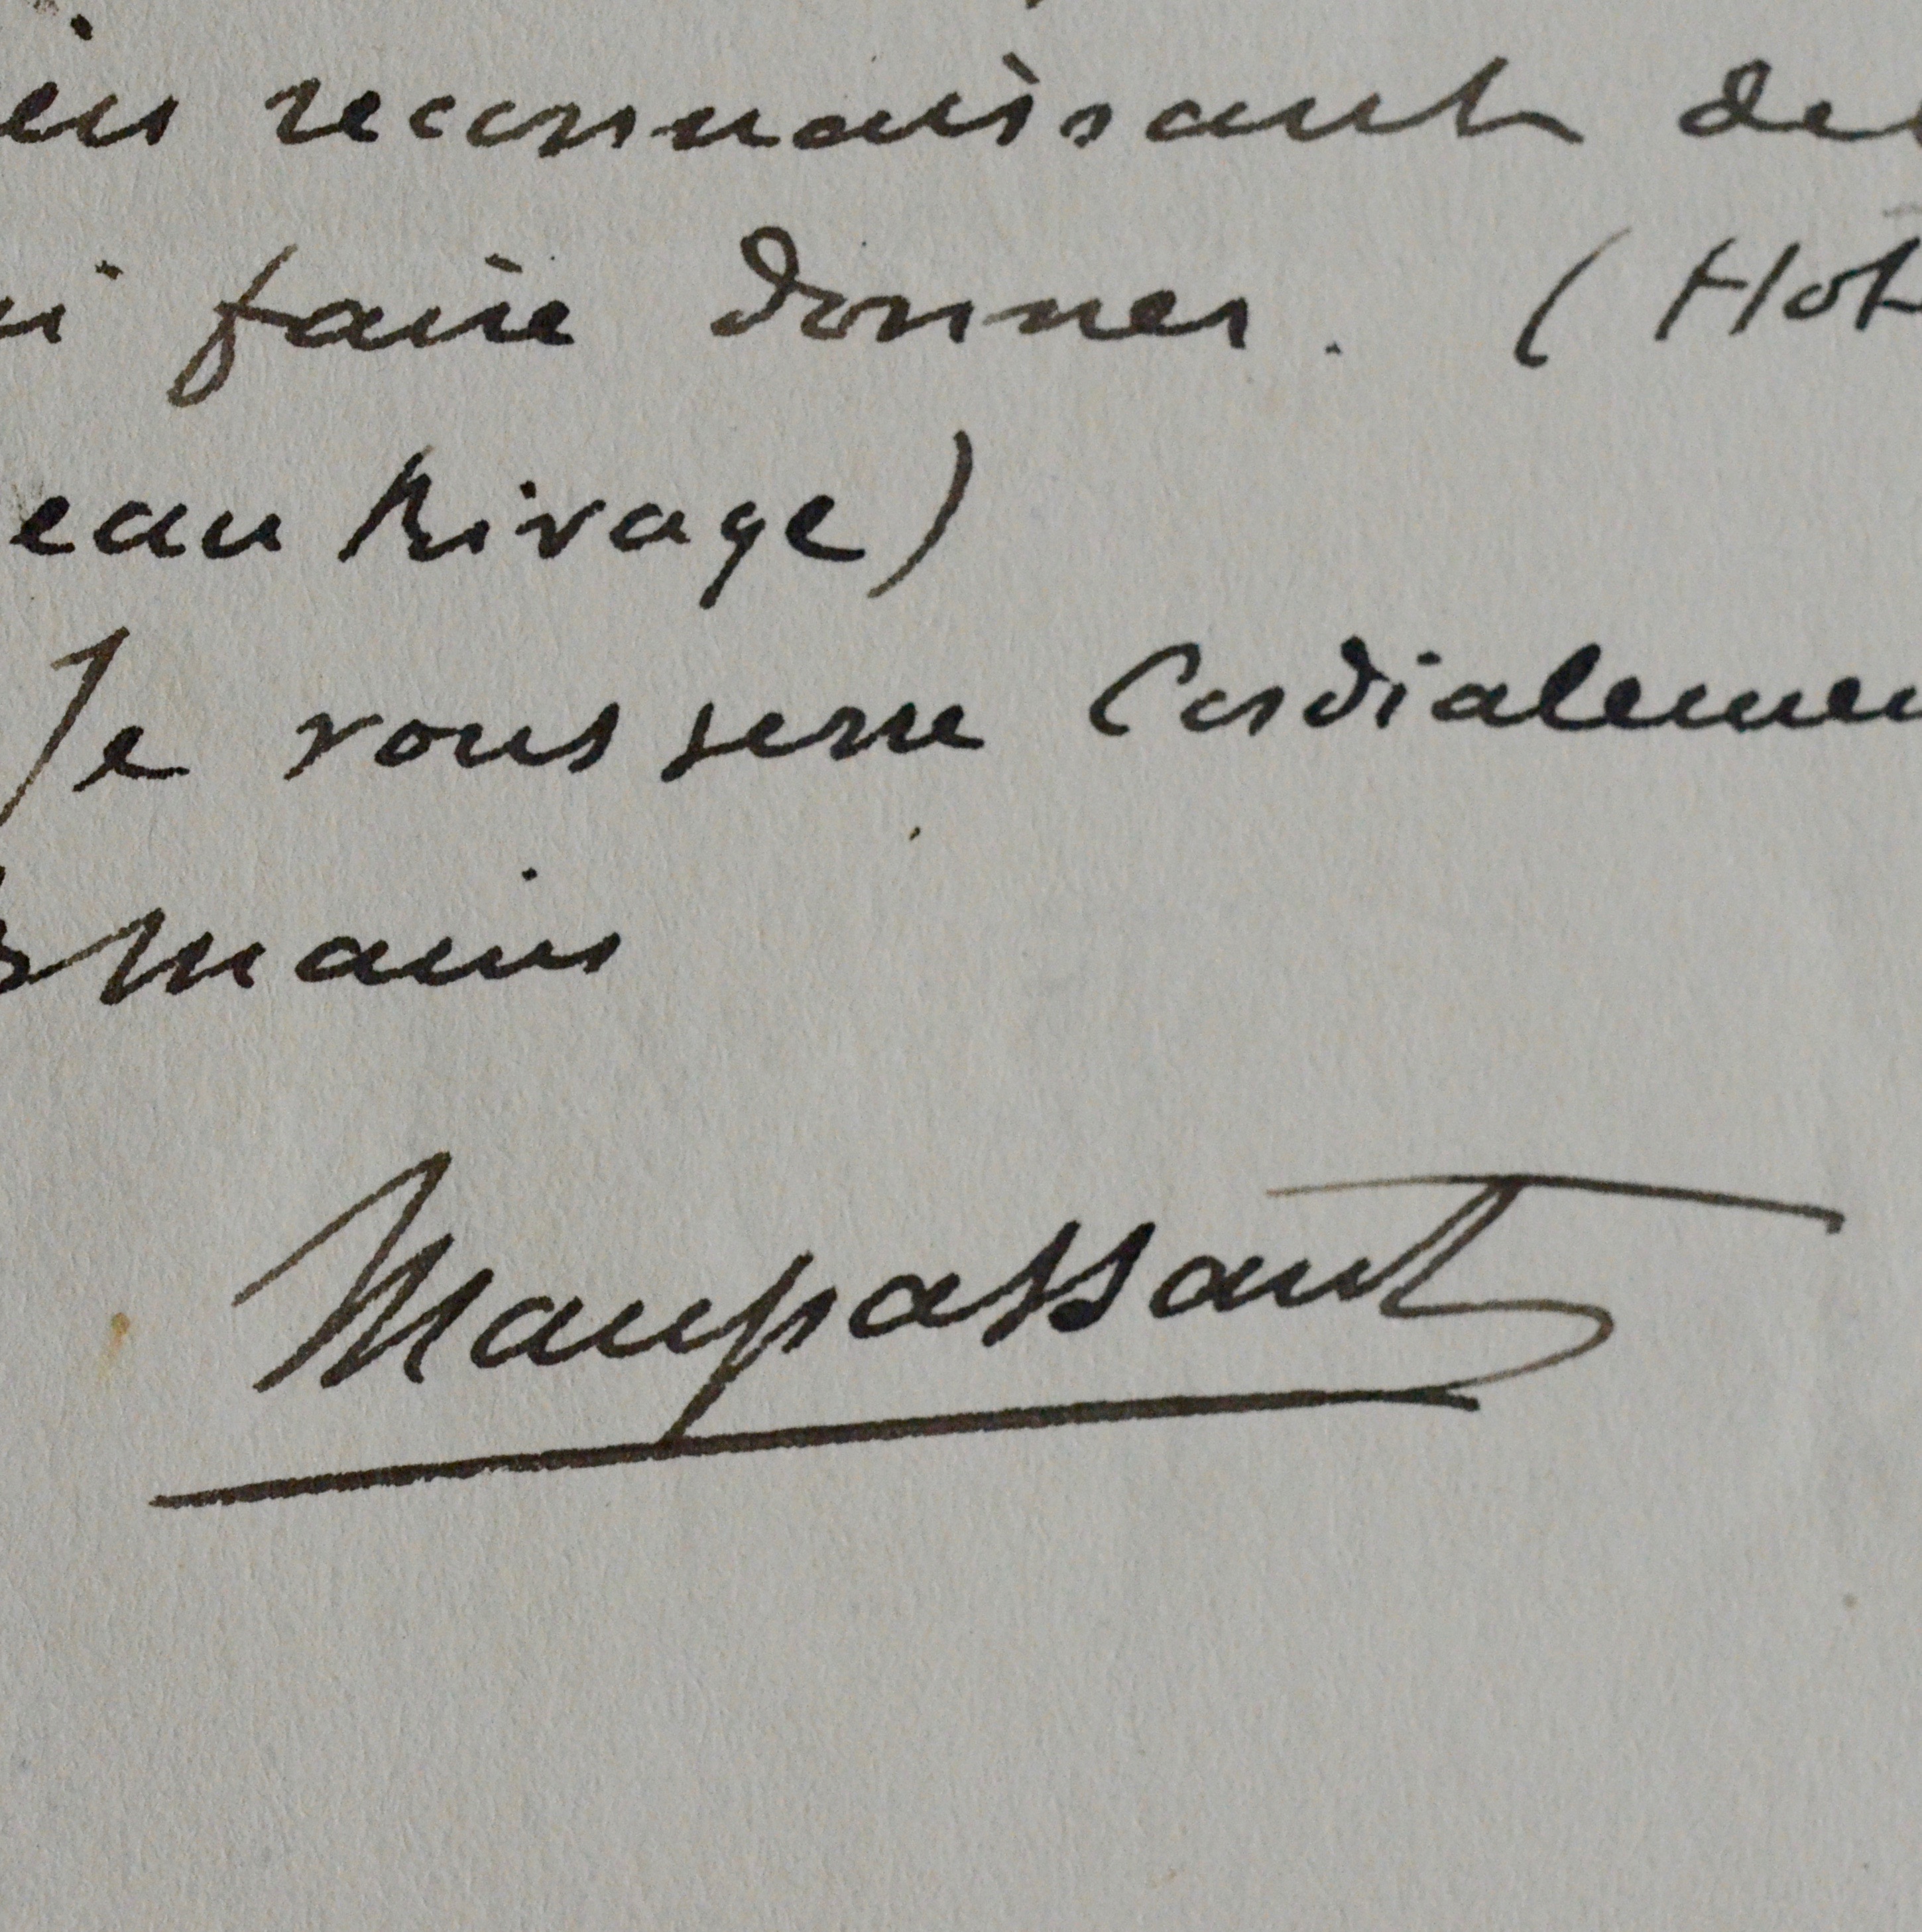 ien reconnaissant de
ui faire donner. (Hot
eau Rivage)
Je vous serre Cordialemen
s mains
Maupassant